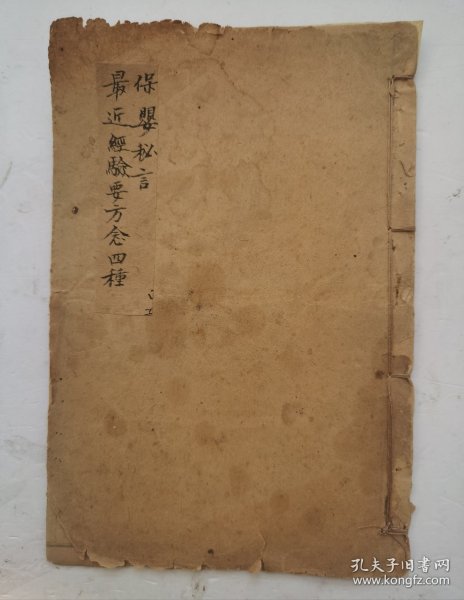 保嬰秘言
最近經驗要方念四種
孔夫子旧书网
www.kongfz.com